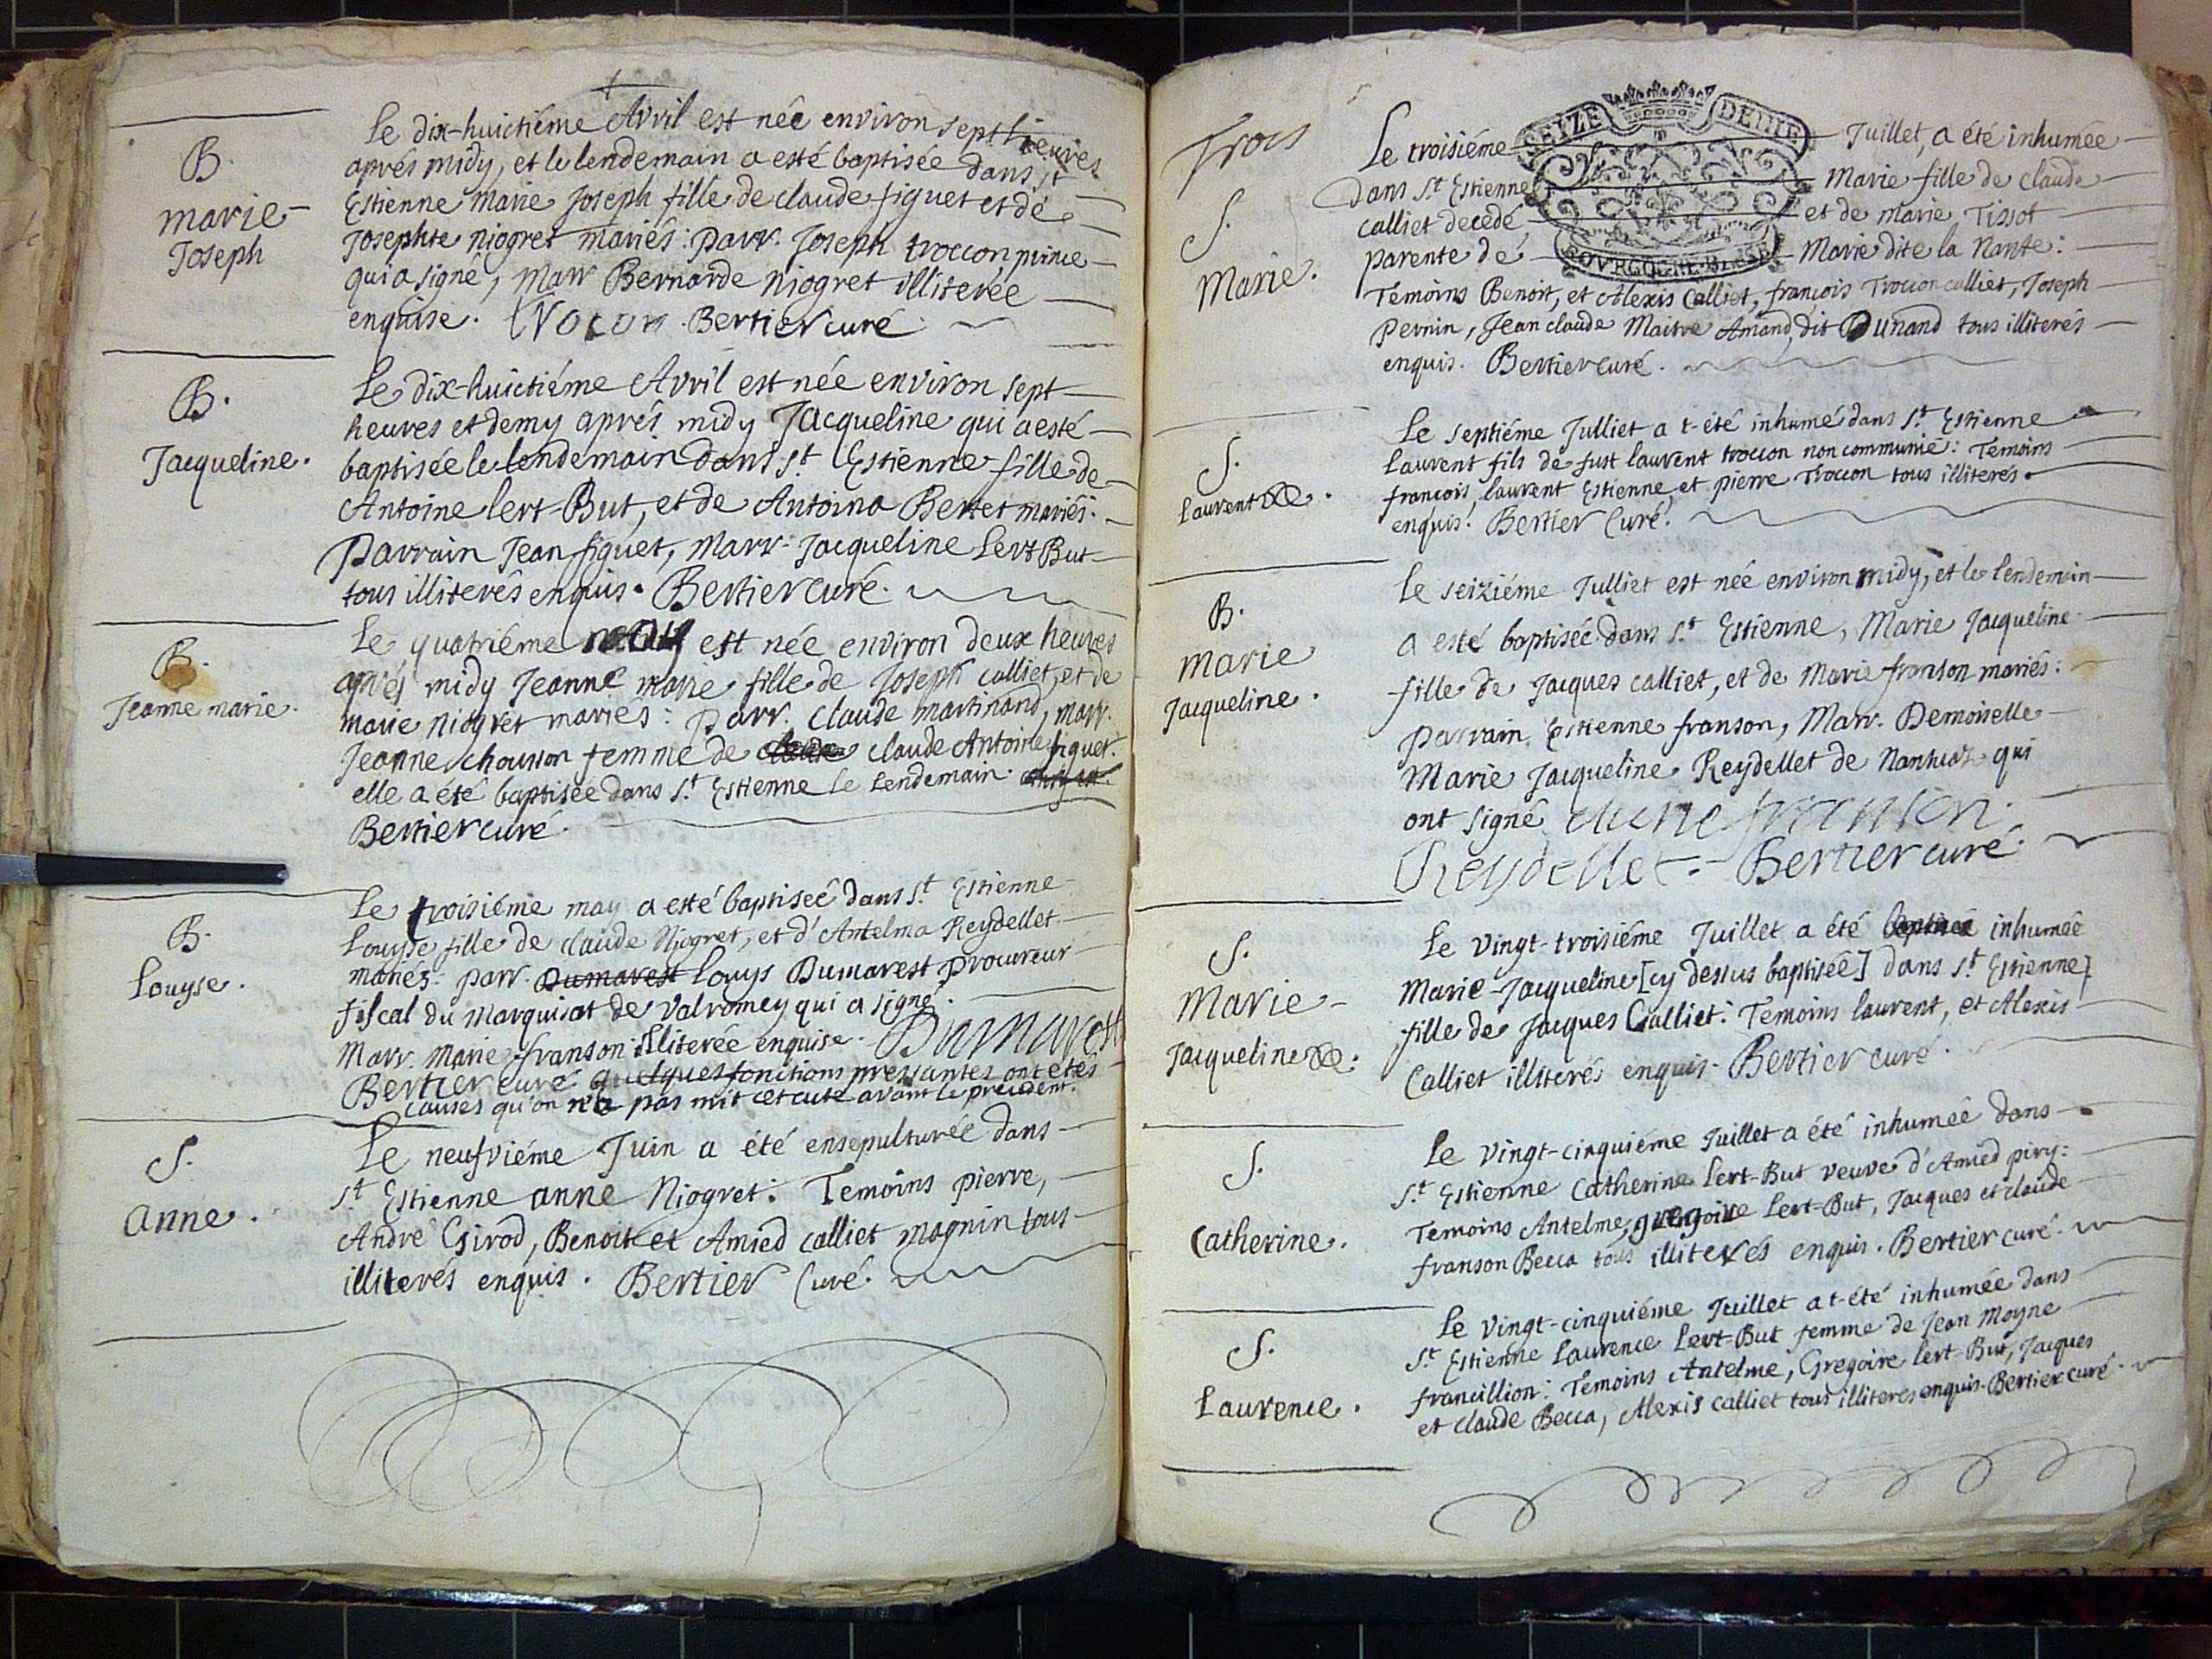 B.
marie-
Joseph
Le dix-huictiéme Avril est née environ sept heures
aprés midy, et le lendemain a esté baptisée dans St
Estienne Marie Joseph fille de claude figuet et de
Josephte niogret mariés: Parr. Joseph troccon prince
qui a signé, Marr Bernarde Niogret illiterée
enquise. Trocon. Bertier curé.
B.
Jacqueline.
Le dix-huictiéme Avril est née environ sept
heures et demy aprés midy Jacqueline qui a esté
baptisée le lendemain dans St Estienne fille de
Antoine lert-But, et de Antoina Bertet mariés.
Parrain Jean figuet, Marr. Jacqueline Lert But
tous illiterés enquis. Bertier curé.
B.
Jeanne marie.
Le quatriéme may est née environ deux heures
aprés midy Jeanne marie fille de Joseph calliet, et de
marie niogret mariés: parr. claude martinand, marr.
Jeanne chousson femme de claude claude Antoine figuet.
elle a été baptisée dans St Estienne le Lendemain.
Bertier curé.
B.
Louyse.
Le troisiéme may a esté baptiseé dans St Estienne
Louyse fille de claude Niogret, et d'Antelma Reydellet
mariéz: parr. Dumarest Louys Dumarest procureur
fiscal du Marquisat de Valromey qui a signé.
Marr. Marie franson illiterée enquise. Dumarest
Bertier curé quelques fonctions pressantes ont etés
causes qu'on n'a pas mit cet acte avant le precedent.
S.
Anne.
Le neufviéme Juin a été ensepulturée dans
St Estienne anne Niogret: Temoins pierre,
André Girod, Benoit et Amied calliet magnin tous
illiterés enquis. Bertier Curé.
Trois
SEIZE DENIE
BOVRGOGNE BRESSE
S.
Marie.
Le troisiéme Juillet, a été inhumée
dans St Estienne Marie fille de claude
calliet decedé, et de marie Tissot
parente de Marie dite la Nante:
Témoins Benoit, et Alexis Calliet, francois Troccon calliet, Joseph
Pernin, Jean claude Maitre Amand, dit Dunand tous illiterés
enquis. Bertier curé.
S.
Laurent.
Le septiéme Julliet a t-été inhumé dans St Estienne
Laurent fils de Just laurent troccon non communié: Temoins
francois, laurent Estienne et pierre Troccon tous illiterés
enquis. Bertier Curé.
B.
Marie
Jacqueline.
Le seiziéme Julliet est née environ midy, et le lendemain
a esté baptisée dans St Estienne, Marie Jacqueline
fille de Jacques calliet, et de Marie franson mariés:
Parrain Estienne franson, Marr. Demoiselle
Marie Jacqueline Reydellet de Nantuaz qui
ont signé etiene franson.
Reydellet - Bertier curé.
S.
Marie-
Jacqueline.
Le vingt-troisiéme Juillet a été baptisée inhumée
Marie-Jacqueline [cy dessus baptisée] dans St Estienne]
fille de Jacques Calliet: Temoins laurent, et Alexis
Calliet illiterés enquis. Bertier curé.
S.
Catherine.
Le vingt-cinquiéme Juillet a été inhumée dans
St Estienne Catherine Lert-But veuve d'Amied piry:
Temoins Antelme, gregoire Lert-But, Jacques et claude
franson Becca tous illiterés enquis. Bertier curé.
S.
Laurence.
Le vingt-cinquiéme Juillet a t-été inhumée dans
St Estienne Laurence Lert-But femme de Jean Moyne
francillion: Témoins Antelme, Gregoire lert-But, Jacques
et claude Becca, Alexis calliet tous illiteres enquis. Bertier curé.